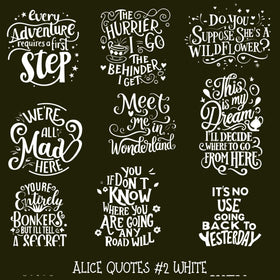 Every
Adventure
requires a first
Step
THE
HURRIER
I GO
THE
BEHINDER
I GET
Do You
Suppose She's A
Wildflower?
WE'RE
ALL
Mad
HERE
Meet
me in
Wonderland
This
is my
Dream
I'LL DECIDE
WHERE TO GO
FROM HERE
YOU'RE
Entirely
BONKERS
BUT I'LL TELL
A SECRET
IF
YOU
DON'T
KNOW
WHERE YOU
ARE GOING
ANY
ROAD WILL
IT'S NO
USE
GOING
BACK TO
YESTERDAY
ALICE QUOTES #2 WHITE